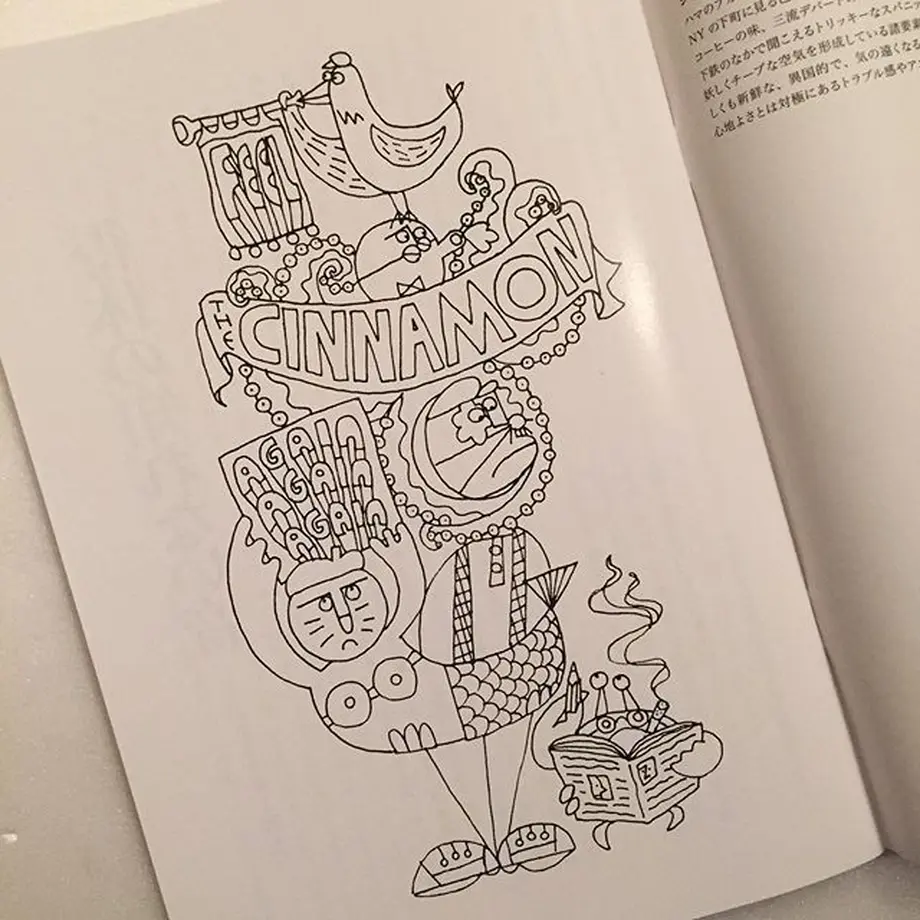 THE
CINNAMON
AGAIN
AGAIN
AGAIN
ハマのブル
NYの下町に見る
コーヒーの味、三流デパート
下鉄のなかで聞こえるトリッキーなスパニ
妖しくチープな空気を形成している諸要素
しくも新鮮な、異国的で、気の遠くなる
心地よさとは対極にあるトラブル感やア